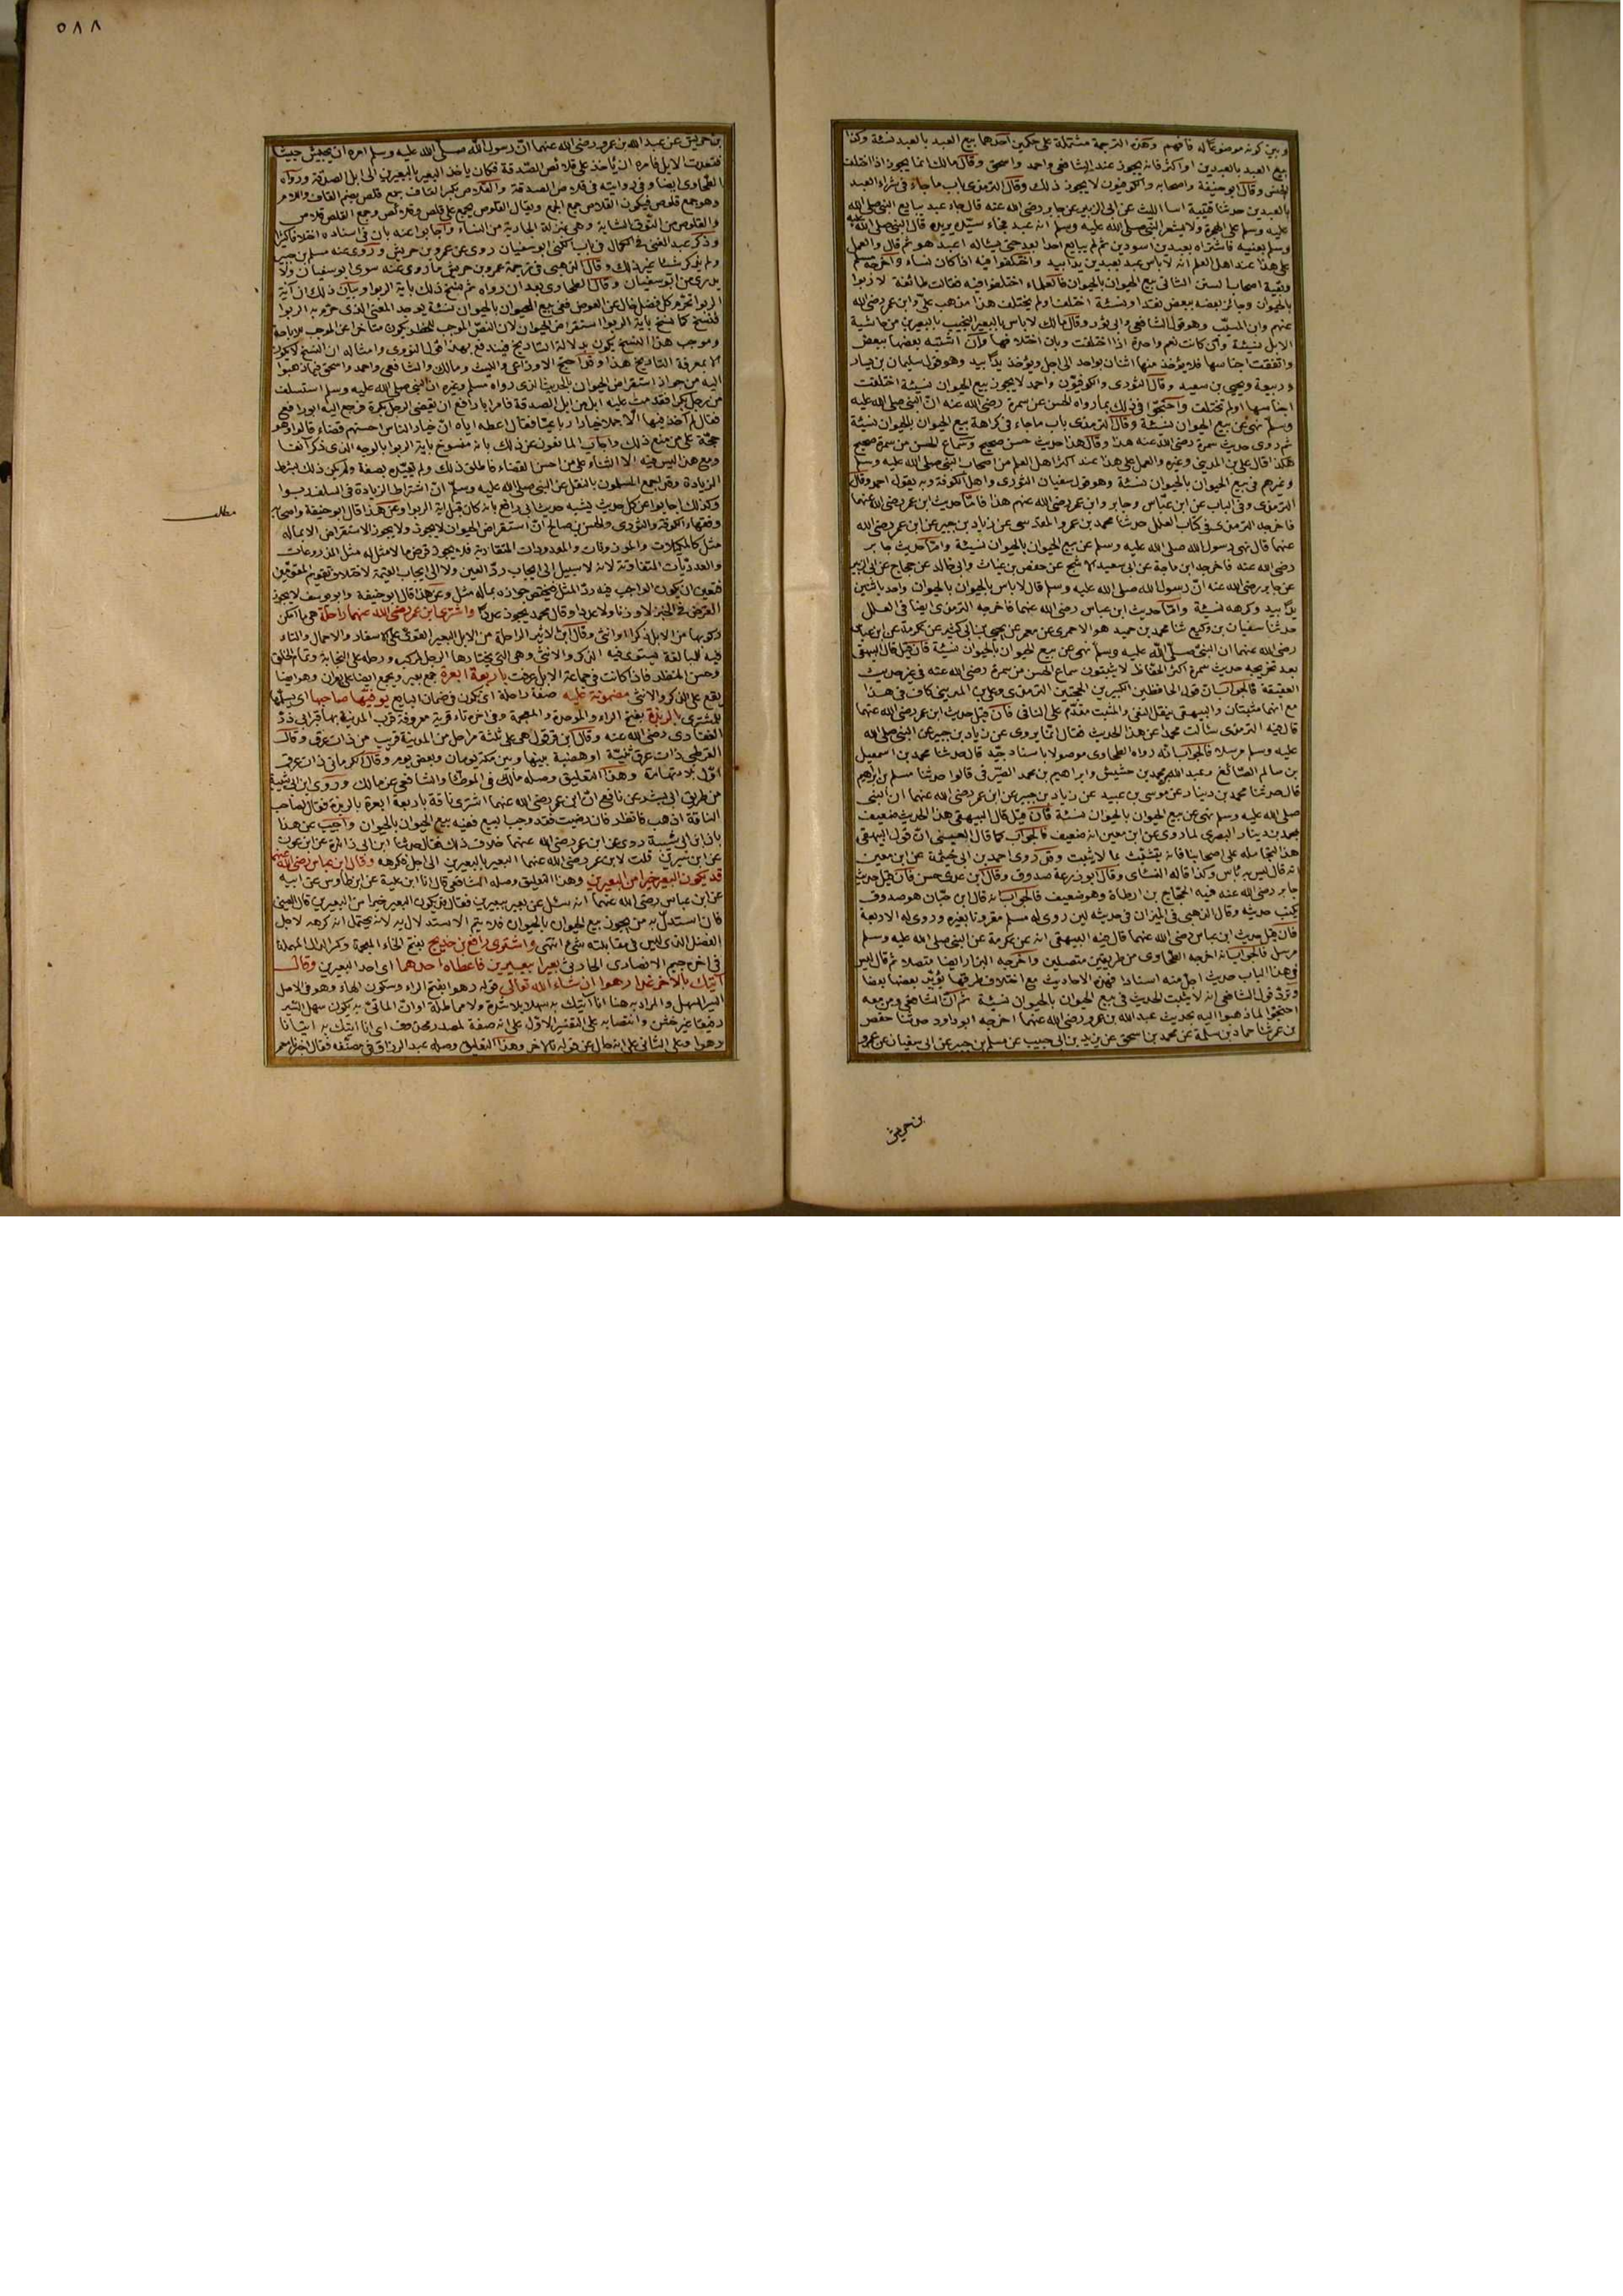 وبين كونه موضوعا له فافهم وهذه الترجمة مشتملة على حكمين احدهما بيع العبد بالعبد نسئة وكذا
بيع العبد بالعبدين او اكثر فانه يجوز عند الشافعي واحمد واسحق وقال مالك انما يجوز اذا اختلف
الجنس وقال ابو حنيفة واصحابه والكوفيون لا يجوز ذلك وقال الترمذي باب ما جاء في شراء العبد
بالعبدين حدثنا قتيبة انا الليث عن ابي الزبير عن جابر رضي الله عنه قال جاء عبد يبايع النبي صلى الله
عليه وسلم على الهجرة ولا يشعر النبي صلى الله عليه وسلم انه عبد فجاء سيده يريده قال النبي صلى الله عليه
وسلم بعنيه فاشتراه بعبدين اسودين ثم لم يبايع احدا بعد حتى يسأله اعبد هو ثم قال والعمل
على هذا عند اهل العلم انه لا بأس عبد بعبدين يدا بيد واختلفوا فيه اذا كان نساء واخرجه مسلم
وبقية اصحاب السنن الثاني بيع الحيوان بالحيوان فالعلماء اختلفوا فيه فقالت طائفة لا ربوا
بالحيوان وجائز بعضه ببعض نقدا ونسئة اختلف او لم يختلف هذا مذهب علي وابن عمر رضي الله
عنهم وابن المسيب وهو قول الشافعي وابي ثور وقال مالك لا بأس بالبعير النجيب بالبعيرين من حاشية
الابل نسيئة وان كانت نعم واحدة اذا اختلفت وبان اختلافها وان اشتبه بعضها ببعض
واتفقت اجناسها فلا يؤخذ منها اثنان بواحد الى اجل ويؤخذ يدا بيد وهو قول سليمان بن يسار
وربيعة ويحيى بن سعيد وقال الثوري والكوفيون واحمد لا يجوز بيع الحيوان نسيئة اختلفت
اجناسها او لم تختلف واحتجوا في ذلك بما رواه الحسن عن سمرة رضي الله عنه ان النبي صلى الله عليه
وسلم نهى عن بيع الحيوان نسيئة وقال الترمذي باب ما جاء في كراهة بيع الحيوان بالحيوان نسيئة
ثم روى حديث سمرة رضي الله عنه هذا وقال هذا حديث حسن صحيح وسماع الحسن من سمرة صحيح
هكذا قال علي بن المديني وغيره والعمل على هذا عند اكثر اهل العلم من اصحاب النبي صلى الله عليه وسلم
وغيرهم في بيع الحيوان بالحيوان نسئة وهو قول سفيان الثوري واهل الكوفة وبه يقول احمد وقال
الترمذي وفي الباب عن ابن عباس وجابر وابن عمر رضي الله عنهم هذا فاما حديث ابن عمر رضي الله عنهما
فاخرجه الترمذي في كتاب العلل حدثنا محمد بن عمرو المقدسي عن زياد بن جبير عن ابن عمر رضي الله
عنهما قال نهى رسول الله صلى الله عليه وسلم عن بيع الحيوان بالحيوان نسيئة واما حديث جابر
رضي الله عنه فاخرجه ابن ماجة عن ابي سعيد الاشج عن حفص بن غياث وابي خالد عن حجاج عن ابي الزبير
عن جابر رضي الله عنه ان رسول الله صلى الله عليه وسلم قال لا باس بالحيوان بالحيوان واحد باثنين
يدا بيد وكرهه نسيئة واما حديث ابن عباس رضي الله عنهما فاخرجه الترمذي ايضا في العلل
حدثنا سفيان بن وكيع ثنا محمد بن حميد هو الاحمري عن معمر عن يحيى بن ابي كثير عن عكرمة عن ابن عباس
رضي الله عنهما ان النبي صلى الله عليه وسلم نهى عن بيع الحيوان بالحيوان نسيئة فان قيل قال البيهقي
بعد تخريجه حديث سمرة اكثر الحفاظ لا يثبتون سماع الحسن من سمرة رضي الله عنه في غير حديث
العقيقة فالجواب ان قول الحافظين الكبيرين الحجتين الترمذي وعلي بن المديني كاف في هذا
مع انهما مثبتان والبيهقي ينقل النفي والمثبت مقدم على النافي فان قيل حديث ابن عمر رضي الله عنهما
قال فيه الترمذي سألت محمدا عن هذا الحديث فقال انما يروى عن زياد بن جبير عن النبي صلى الله
عليه وسلم مرسلا فالجواب انه رواه الطحاوي موصولا باسناد جيد قال حدثنا محمد بن اسمعيل
بن سالم الصائغ وعبد الله بن محمد بن حشيش وابراهيم بن محمد الصيرفي قالوا حدثنا مسلم بن ابراهيم
قال حدثنا محمد بن دينار عن موسى بن عبيد عن زياد بن جبير عن ابن عمر رضي الله عنهما ان النبي
صلى الله عليه وسلم نهى عن بيع الحيوان بالحيوان نسئة فان قيل قال البيهقي هذا الحديث ضعيف
بمحمد بن دينار البصري لما روي عن ابن معين انه ضعيف فالجواب كما قال العيني ان قول البيهقي
هذا لتحامله على اصحابنا فانه يتشبث بما لا يثبت وقد روى احمد بن ابي خيثمة عن ابن معين
انه قال ليس به بأس وكذا قاله النسائي وقال ابو زرعة صدوق وقال ابن عدي حسن فان قيل حديث
جابر رضي الله عنه فيه الحجاج بن ارطاة وهو ضعيف فالجواب انه قال ابن حبان هو صدوق
يكتب حديثه وقال الذهبي في الميزان في حديثه لين روى له مسلم مقرونا بغيره وروى له الاربعة
فان قيل حديث ابن عباس رضي الله عنهما قال فيه البيهقي انه عن عكرمة عن النبي صلى الله عليه وسلم
مرسل فالجواب انه اخرجه الطحاوي من طريقين متصلين واخرجه البزار ايضا متصلا ثم قال ليس
في هذا الباب حديث اجل منه اسنادا فهذه الاحاديث مع اختلاف طرقها يؤيد بعضها بعضا
وترد قول الشافعي انه لا يثبت الحديث في بيع الحيوان بالحيوان نسيئة ثم ان الشافعي ومن معه
احتجوا لما ذهبوا اليه بحديث عبد الله بن عمرو رضي الله عنهما اخرجه ابو داود حدثنا حفص
بن عمر ثنا حماد بن سلمة عن محمد بن اسحق عن يزيد بن ابي حبيب عن مسلم بن جبير عن ابي سفيان عن عمرو
بن حريش
٥٨٨
بن حريش عن عبد الله بن عمرو رضي الله عنهما ان رسول الله صلى الله عليه وسلم امره ان يجهز جيشا
فنفدت الابل فامره ان يأخذ على قلائص الصدقة فكان ياخذ البعير بالبعيرين الى ابل الصدقة ورواه
الطحاوي ايضا وفي روايته في قلاص الصدقة والقلاص بكسر القاف جمع قلص بضم القاف واللام
وهو جمع قلوص فيكون القلاص جمع الجمع ويقال القلوص يجمع على قلص وقلائص وجمع القلص قلاص
والقلوص من النوق الشابة وهي بمنزلة الجارية من النساء واجابوا عنه بان في اسناده اختلافا كثيرا
وذكر عبد الغني في الكمال في باب الكنى ابو سفيان روى عن عمرو بن حريش وروى عنه مسلم بن جبير
ولم يذكر شيئا غير ذلك وقال الذهبي في ترجمة عمرو بن حريش ما روى عنه سوى ابو سفيان ولا
يدرى من ابو سفيان وقال الطحاوي بعد ان رواه ثم نسخ ذلك باية الربوا وبيان ذلك ان آية
الربوا تحرم كل فضل خال عن العوض ففي بيع الحيوان بالحيوان نسئة يوجد المعنى الذي حرم به الربوا
فنسخ كما نسخ باية الربوا استقراض الحيوان لان النص الموجب للحظر يكون متأخرا عن الموجب للاباحة
وموجب هذا النسخ يكون بدلالة التاريخ فيندفع بهذا قول النووي وامثاله ان النسخ لا يكون
الا بمعرفة التاريخ هذا وقد احتج الاوزاعي والليث ومالك والشافعي واحمد واسحق فيما ذهبوا
اليه من جواز استقراض الحيوان بالحديث الذي رواه مسلم وغيره ان النبي صلى الله عليه وسلم استسلف
من رجل بكرا فقدمت عليه ابل من ابل الصدقة فامر ابا رافع ان يقضي الرجل بكره فرجع اليه ابو رافع
فقال لم اجد فيها الا جملا خيارا رباعيا فقال اعطه اياه ان خيار الناس احسنهم قضاء قالوا وهو
حجة على من منع ذلك واجاب المانعون عن ذلك بانه منسوخ باية الربوا بالوجه الذي ذكر آنفا
ومع هذا ليس فيه الا الثناء على من احسن القضاء فاطلق ذلك ولم يقيده بصفة ولم يكن ذلك بشرط
الزيادة وقد اجمع المسلمون بالنقل عن النبي صلى الله عليه وسلم ان اشتراط الزيادة في السلف ربوا
وكذلك اجابوا عن كل حديث يشبه حديث ابي رافع بانه كان قبل اية الربوا وعن هذا قال ابو حنيفة واصحابه
وفقهاء الكوفة والثوري والحسن بن صالح ان استقراض الحيوان لا يجوز ولا يجوز الاستقراض الا بما له
مثل كالمكيلات والموزونات والعدديات المتقاربة فلا يجوز قرض ما لا مثل له مثل المذروعات
والعدديات المتفاوتة لانه لا سبيل الى ايجاب رد العين ولا الى ايجاب القيمة لاختلاف تقويم المقومين
فتعين ان يكون الواجب فيه رد المثل فيختص جوازه بما له مثل وعن هذا قال ابو حنيفة وابو يوسف لا يجوز
القرض في الخبز لا وزنا ولا عددا وقال محمد يجوز عددا واشترى ابن عمر رضي الله عنهما راحلة هي ما امكن
ركوبها من الابل ذكرا او انثى وقال ابن الاثير الراحلة من الابل البعير القوي على الاسفار والاحمال والتاء
فيه للمبالغة يستوي فيه الذكر والانثى وهي التي يختارها الرجل لمركبه ورحله على النجابة وتمام الخلق
وحسن المنظر فاذا كانت في جماعة الابل عرفت باربعة ابعرة جمع بعير ويجمع ايضا على بعران وهو ايضا
يقع على الذكر والانثى مضمونة عليه صفة راحلة اي تكون في ضمان البايع يوفيها صاحبها اي يسلمها
للمشتري بالربذة بفتح الراء والموحدة والمعجمة وفي اخره تاء قرية معروفة قرب المدينة بها قبر ابي ذر
الغفاري رضي الله عنه وقال ابن قرقول هي على ثلثة مراحل من المدينة قريب من ذات عرق وقال
القرطبي ذات عرق ثنية او هضبة بينها وبين مكة يومان وبعض يوم وقال الكرماني ذات عرق
اول بلاد تهامة وهذا التعليق وصله مالك في الموطأ والشافعي عن مالك وروى ابن ابي شيبة
من طريق ابي بشر عن نافع ان ابن عمر رضي الله عنهما اشترى ناقة باربعة ابعرة بالربذة فقال لصاحب
الناقة اذهب فانظر فان رضيت فقد وجب البيع ففيه بيع الحيوان بالحيوان واجيب عن هذا
بان ابن ابي شيبة روى عن ابن عمر رضي الله عنهما خلاف ذلك فقال حدثنا ابن ابي زائدة عن ابن عون
عن ابن سيرين قلت لابن عمر رضي الله عنهما البعير بالبعيرين الى اجل فكرهه وقال ابن عباس رضي الله عنهما
قد يكون البعير خيرا من البعيرين وهذا التعليق وصله الشافعي قال انا ابن علية عن ابن طاوس عن ابيه
عن ابن عباس رضي الله عنهما انه سئل عن بعير ببعيرين فقال قد يكون البعير خيرا من البعيرين قال العيني
فان استدل به من يجوز بيع الحيوان بالحيوان فلا يتم الاستدلال به لانه يحتمل انه كرهه لاجل
الفضل الذي ليس في مقابلته شيء انتهى واشترى رافع بن خديج بفتح الخاء المعجمة وكسر الدال المهملة
في اخره جيم الانصاري الحارثي بعيرا ببعيرين فاعطاه احدهما اي احد البعيرين وقال
آتيك بالآخر غدا رهوا ان شاء الله تعالى قوله رهوا بفتح الراء وسكون الهاء وهو في الاصل
السير السهل والمراد به هنا انا آتيك به سهلا بلا شدة ولا مماطلة او ان المأتي به يكون سهل السير
رفيقا غير خشن وانتصابه على التفسير الاول على انه صفة لمصدر محذوف اي انا آتيك به اتيانا
رهوا وعلى الثاني على انه حال عن قوله بالآخر وهذا التعليق وصله عبد الرزاق في مصنفه فقال اخبرنا معمر
مطلب